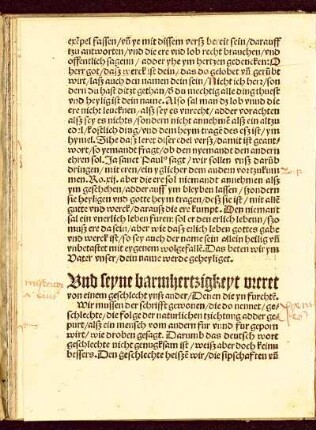 exẽpel fassen/ vñ ye mit dissem versz bereit sein/ darauff
tzu antworten/ vnd die ere vnd lob recht brauchen/ vnd
offentlich sagenn/ adder yhe ym hertzen gedencken: O
herr got/ dasz werck ist dein/ das do gelobet vñ gerübt
wirt/ lasz auch den namen dein sein/ Nicht ich herr/ son
dern du hast ditzt gethan/ d do mechtig alle ding thuest
vnd heylig ist dein name. Also sal man dz lob vnnd die
ere nicht leucken/ alsz sey es vnrecht/ adder vorachten
alsz sey es nichts/ sondern nicht annehmẽ alsz ein altzu
ed:l/ köstlich ding/ vnd dem heym tragẽ des eszist/ ym
hymel. Sihe dasz leret diszer edel versz/ damit ist geant
wort/ so yemandt fragt/ ob den nyemandt den andern
ehren sol. Ja sanct Paul⁹ sagt/ wir sollen vnsz darüb
dringen/ mit eren/ ein yglicher dem andern vortzukum
men. Ro. xij. aber die ere sol niemandt annehmen alsz
ym geschehen/ adder auff ym bleyben lassen/ sondern
sie heyligen vnd gotte heym tragen/ desz sie ist/ mit allẽ
gutte vnd werck/ darausz die ere kumpt. Den niemant
sal ein vnerlich leben füren: sol er den erlich lebenn/ szo
musz ere da sein/ aber wie dasz erlich leben gottes gabe
vnd werck ist/ so sey auch der name sein allein heilig vñ
vnbetastet mit eygenem wolgefallẽ. Das beten wir ym
Vater vnser/ dein name werde geheyliget.
Vnd seyne barmhertzigkeyt weret
von einem geschlecht ynsz ander/ Denen die yn fürchtẽ.
Wir mussen der schrifft gewonen/ die do nennet/ ge-
schlechte/ die folge der naturlichen tzichtung adder ge-
purt/ alsz ein mensch vom andern für vnnd für geporn
wirt/ wie droben gesagt. Darumb das deutsch wort
geschlechte nicht genugksam ist/ weisz aber doch keinn
bessers. Den geschlechte heiszt wir/ die sipschafften vñ